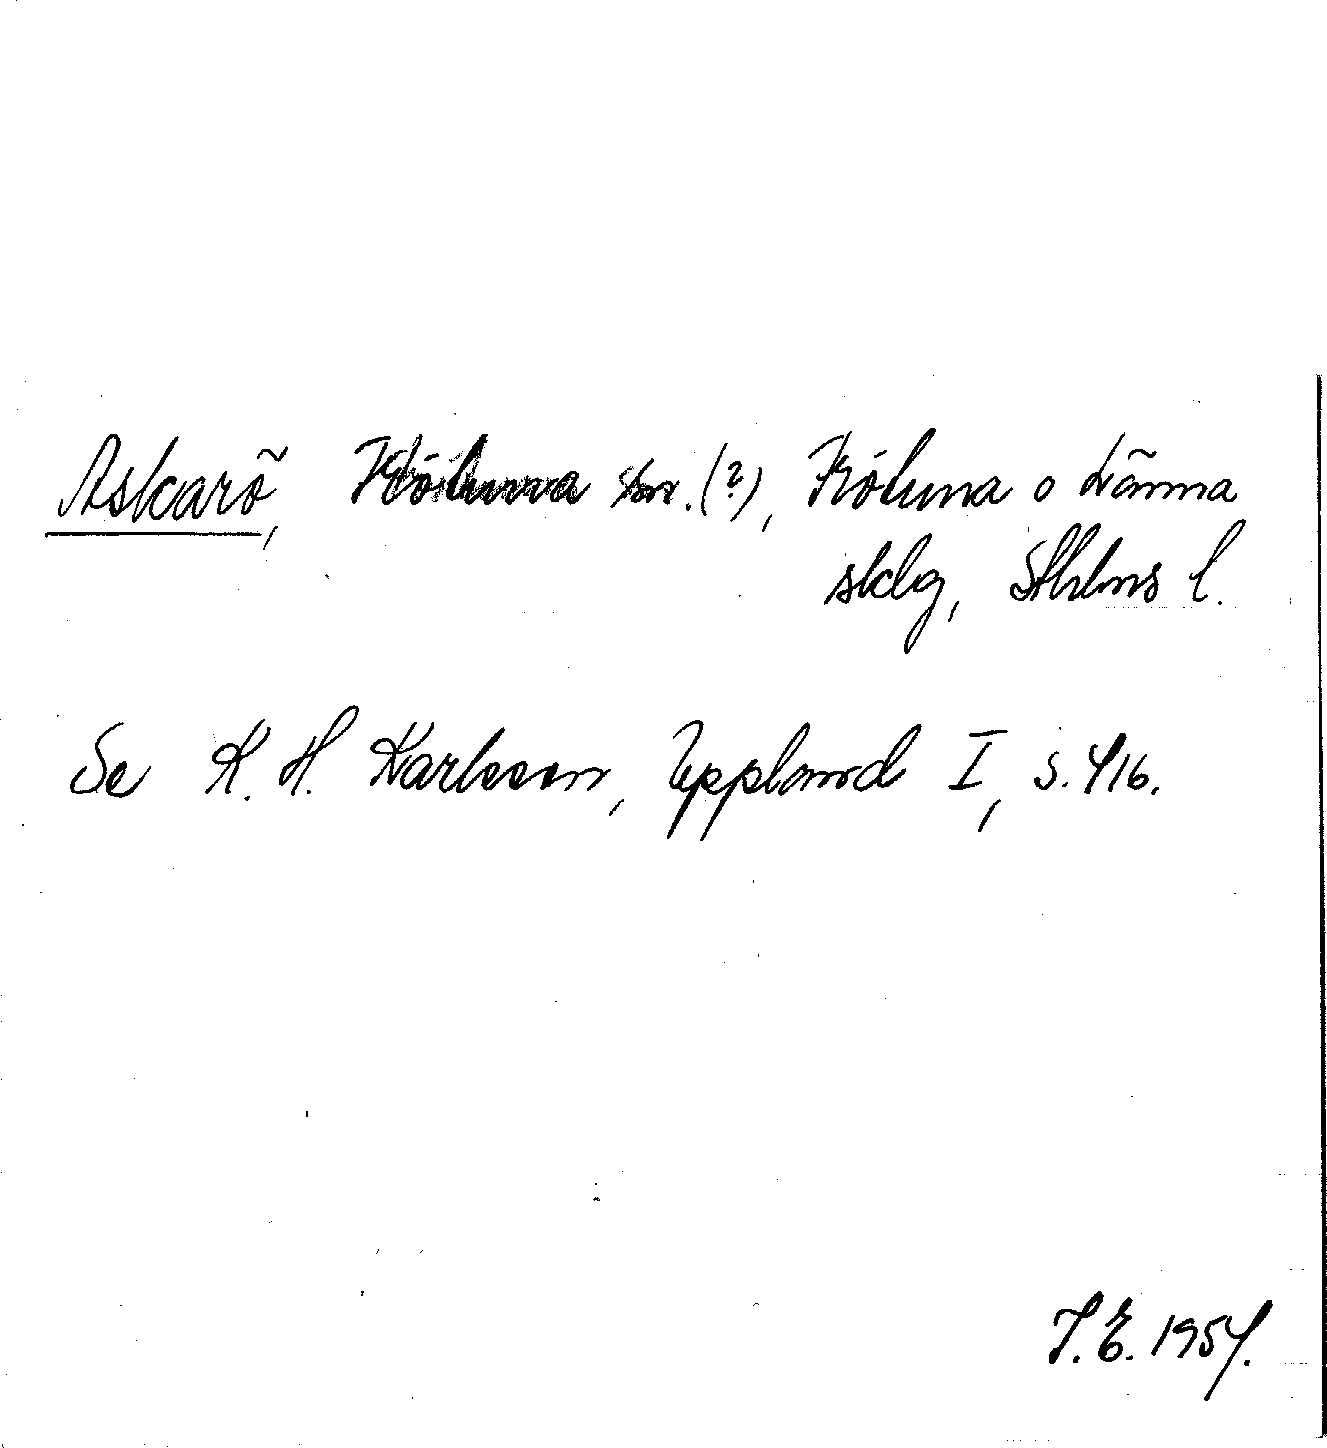 Askarö, Frötuna sn. (?), Frötuna o Länna
sklg, Sthlms l.
Se K. H. Karlsson, Uppland I, s. 416.
T. E. 1954.